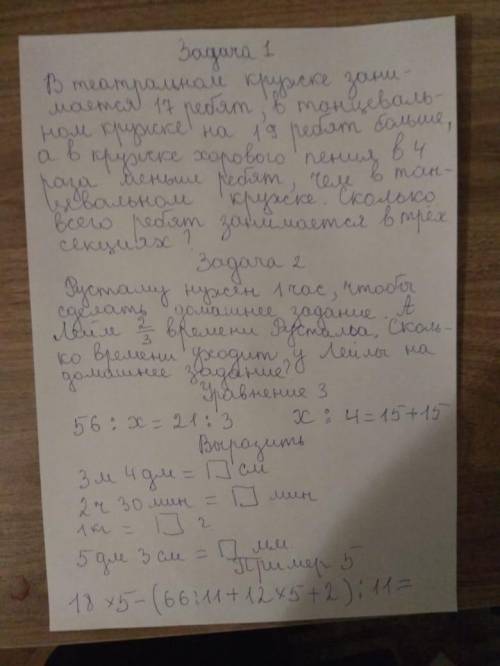 Задача 1
В театральном кружке зани-
мается 17 ребят, в танцеваль-
ном кружке на 19 ребят больше,
а в кружке хорового пения в 4
раза меньше ребят, чем в тан-
цевальном кружке. Сколько
всего ребят занимается в трёх
секциях?
Задача 2
Рустаму нужен 1 час, чтобы
сделать домашнее задание. А
Лейле 2/3 времени Рустама, Сколь-
ко времени уходит у Лейлы на
домашнее задание?
Уравнение 3
56 : х = 21 : 3 х : 4 = 15 + 15
Выразить
3 м 4 дм = □ см
2 ч 30 мин = □ мин
1 кг = □ г
5 дм 3 см = □ мм
Пример 5
18 × 5 - (66 : 11 + 12 × 5 + 2) : 11 =